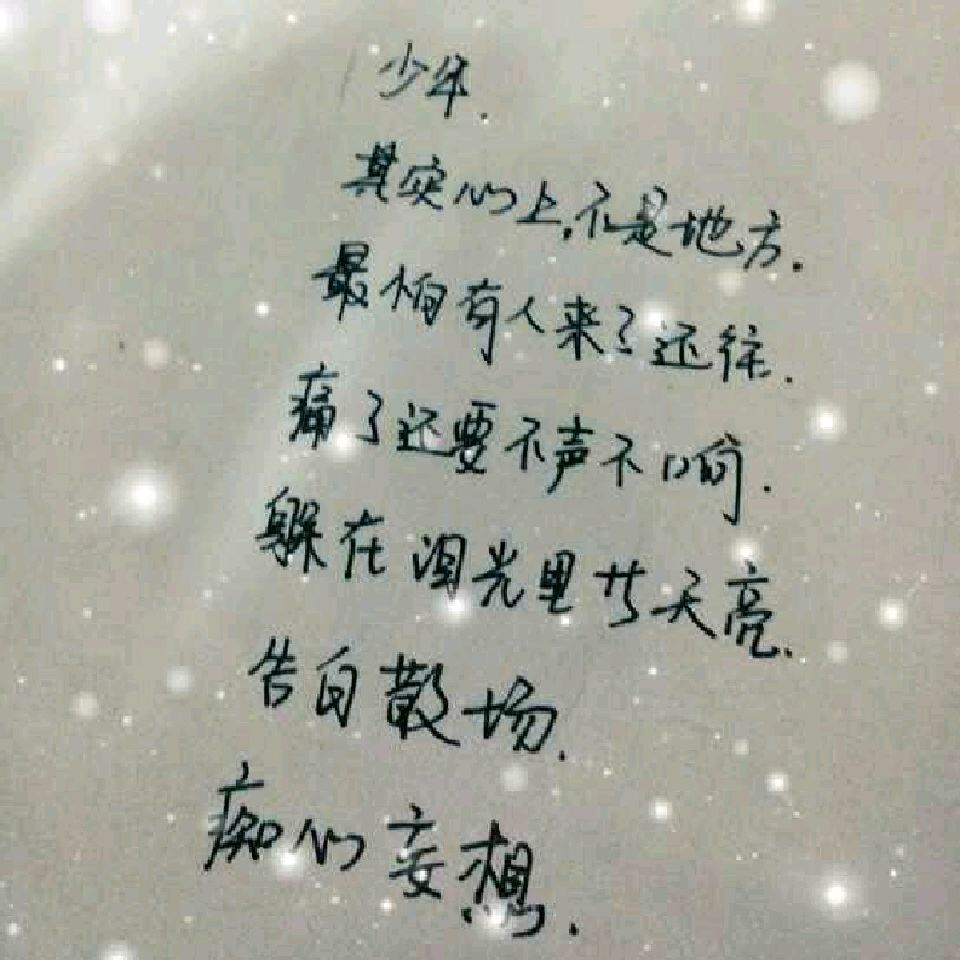 少年.
其实心上,不是地方.
最怕有人来了还往.
痛了还要不声不响.
躲在泪光里等天亮.
告白散场.
痴心妄想.